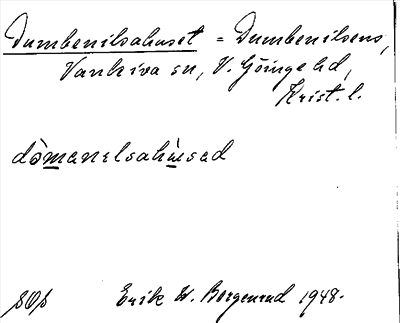 Dumbenilsahuset = Dumbenilsens,
Vankiva sn, V. Göinge hd,
Krist. l.
dòmanelsahùsad
SOP Erik W. Borgenrud 1948.